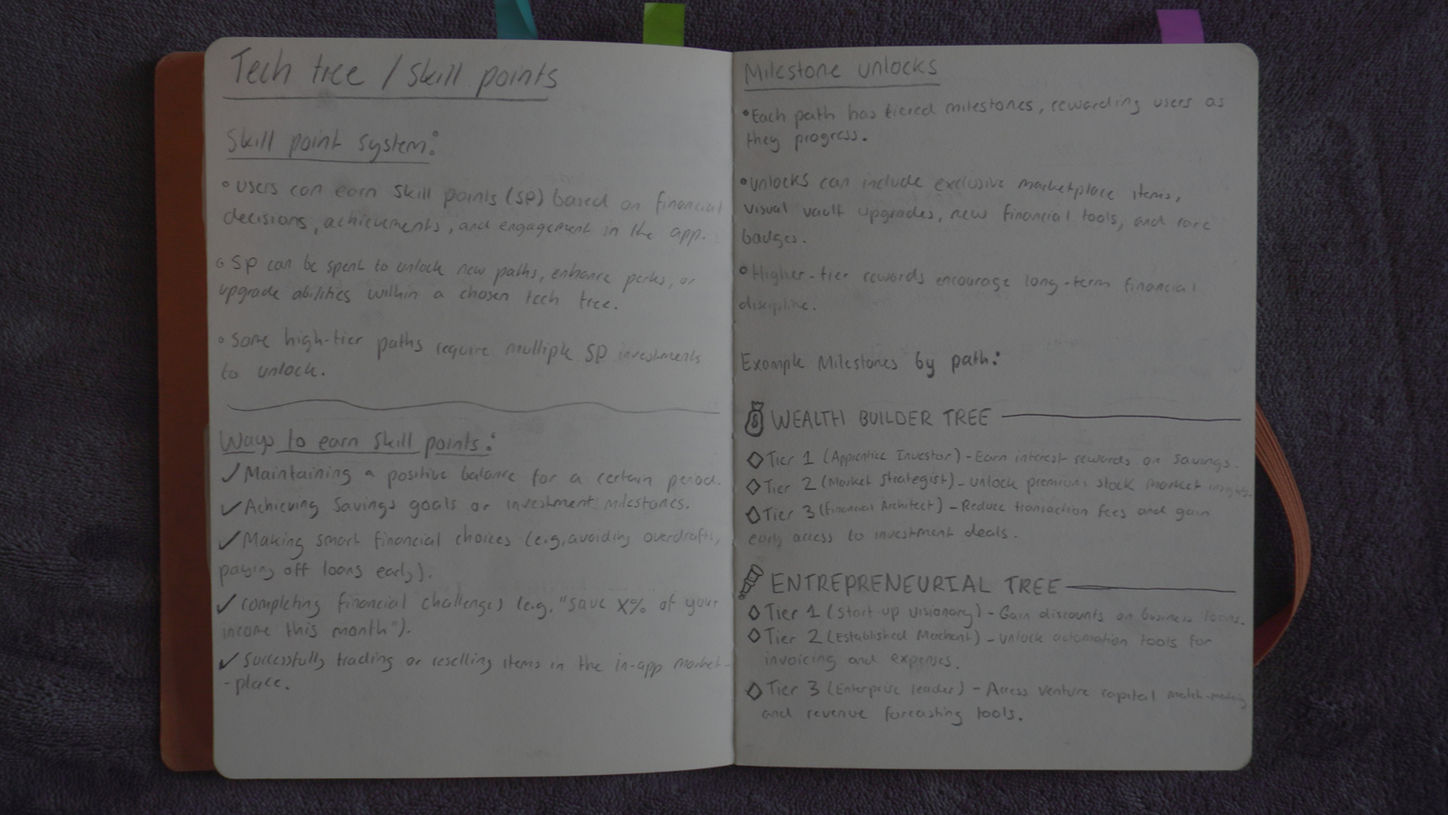 Tech tree / skill points
Skill point system:
• Users can earn skill points (SP) based on financial
decisions, achievements, and engagement in the app.
• SP can be spent to unlock new paths, enhance perks, or
upgrade abilities within a chosen tech tree.
• Some high-tier paths require multiple SP investments
to unlock.
Ways to earn skill points:
✓ Maintaining a positive balance for a certain period.
✓ Achieving savings goals or investment milestones.
✓ Making smart financial choices (e.g, avoiding overdrafts,
paying off loans early).
✓ completing financial challenges (e.g. "save X% of your
income this month").
✓ Successfully trading or reselling items in the in-app market-
-place.
Milestone unlocks
• Each path has tiered milestones, rewarding users as
they progress.
• unlocks can include exclusive marketplace items,
visual vault upgrades, new financial tools, and rare
badges.
• Higher-tier rewards encourage long-term financial
discipline.
Example Milestones by path:
WEALTH BUILDER TREE
◇ Tier 1 (Apprentice Investor) - Earn interest rewards on savings.
◇ Tier 2 (Market Strategist) - unlock premium stock market insights.
◇ Tier 3 (Financial Architect) - Reduce transaction fees and gain
early access to investment deals.
ENTREPRENEURIAL TREE
◇ Tier 1 (Start-up visionary) - Gain discounts on business loans.
◇ Tier 2 (Established Merchant) - unlock automation tools for
invoicing and expenses.
◇ Tier 3 (Enterprise leader) - Access venture capital match-making
and revenue forcasting tools.